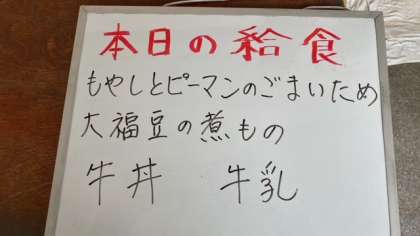 本日の給食
もやしとピーマンのごまいため
大福豆の煮もの
牛丼 牛乳